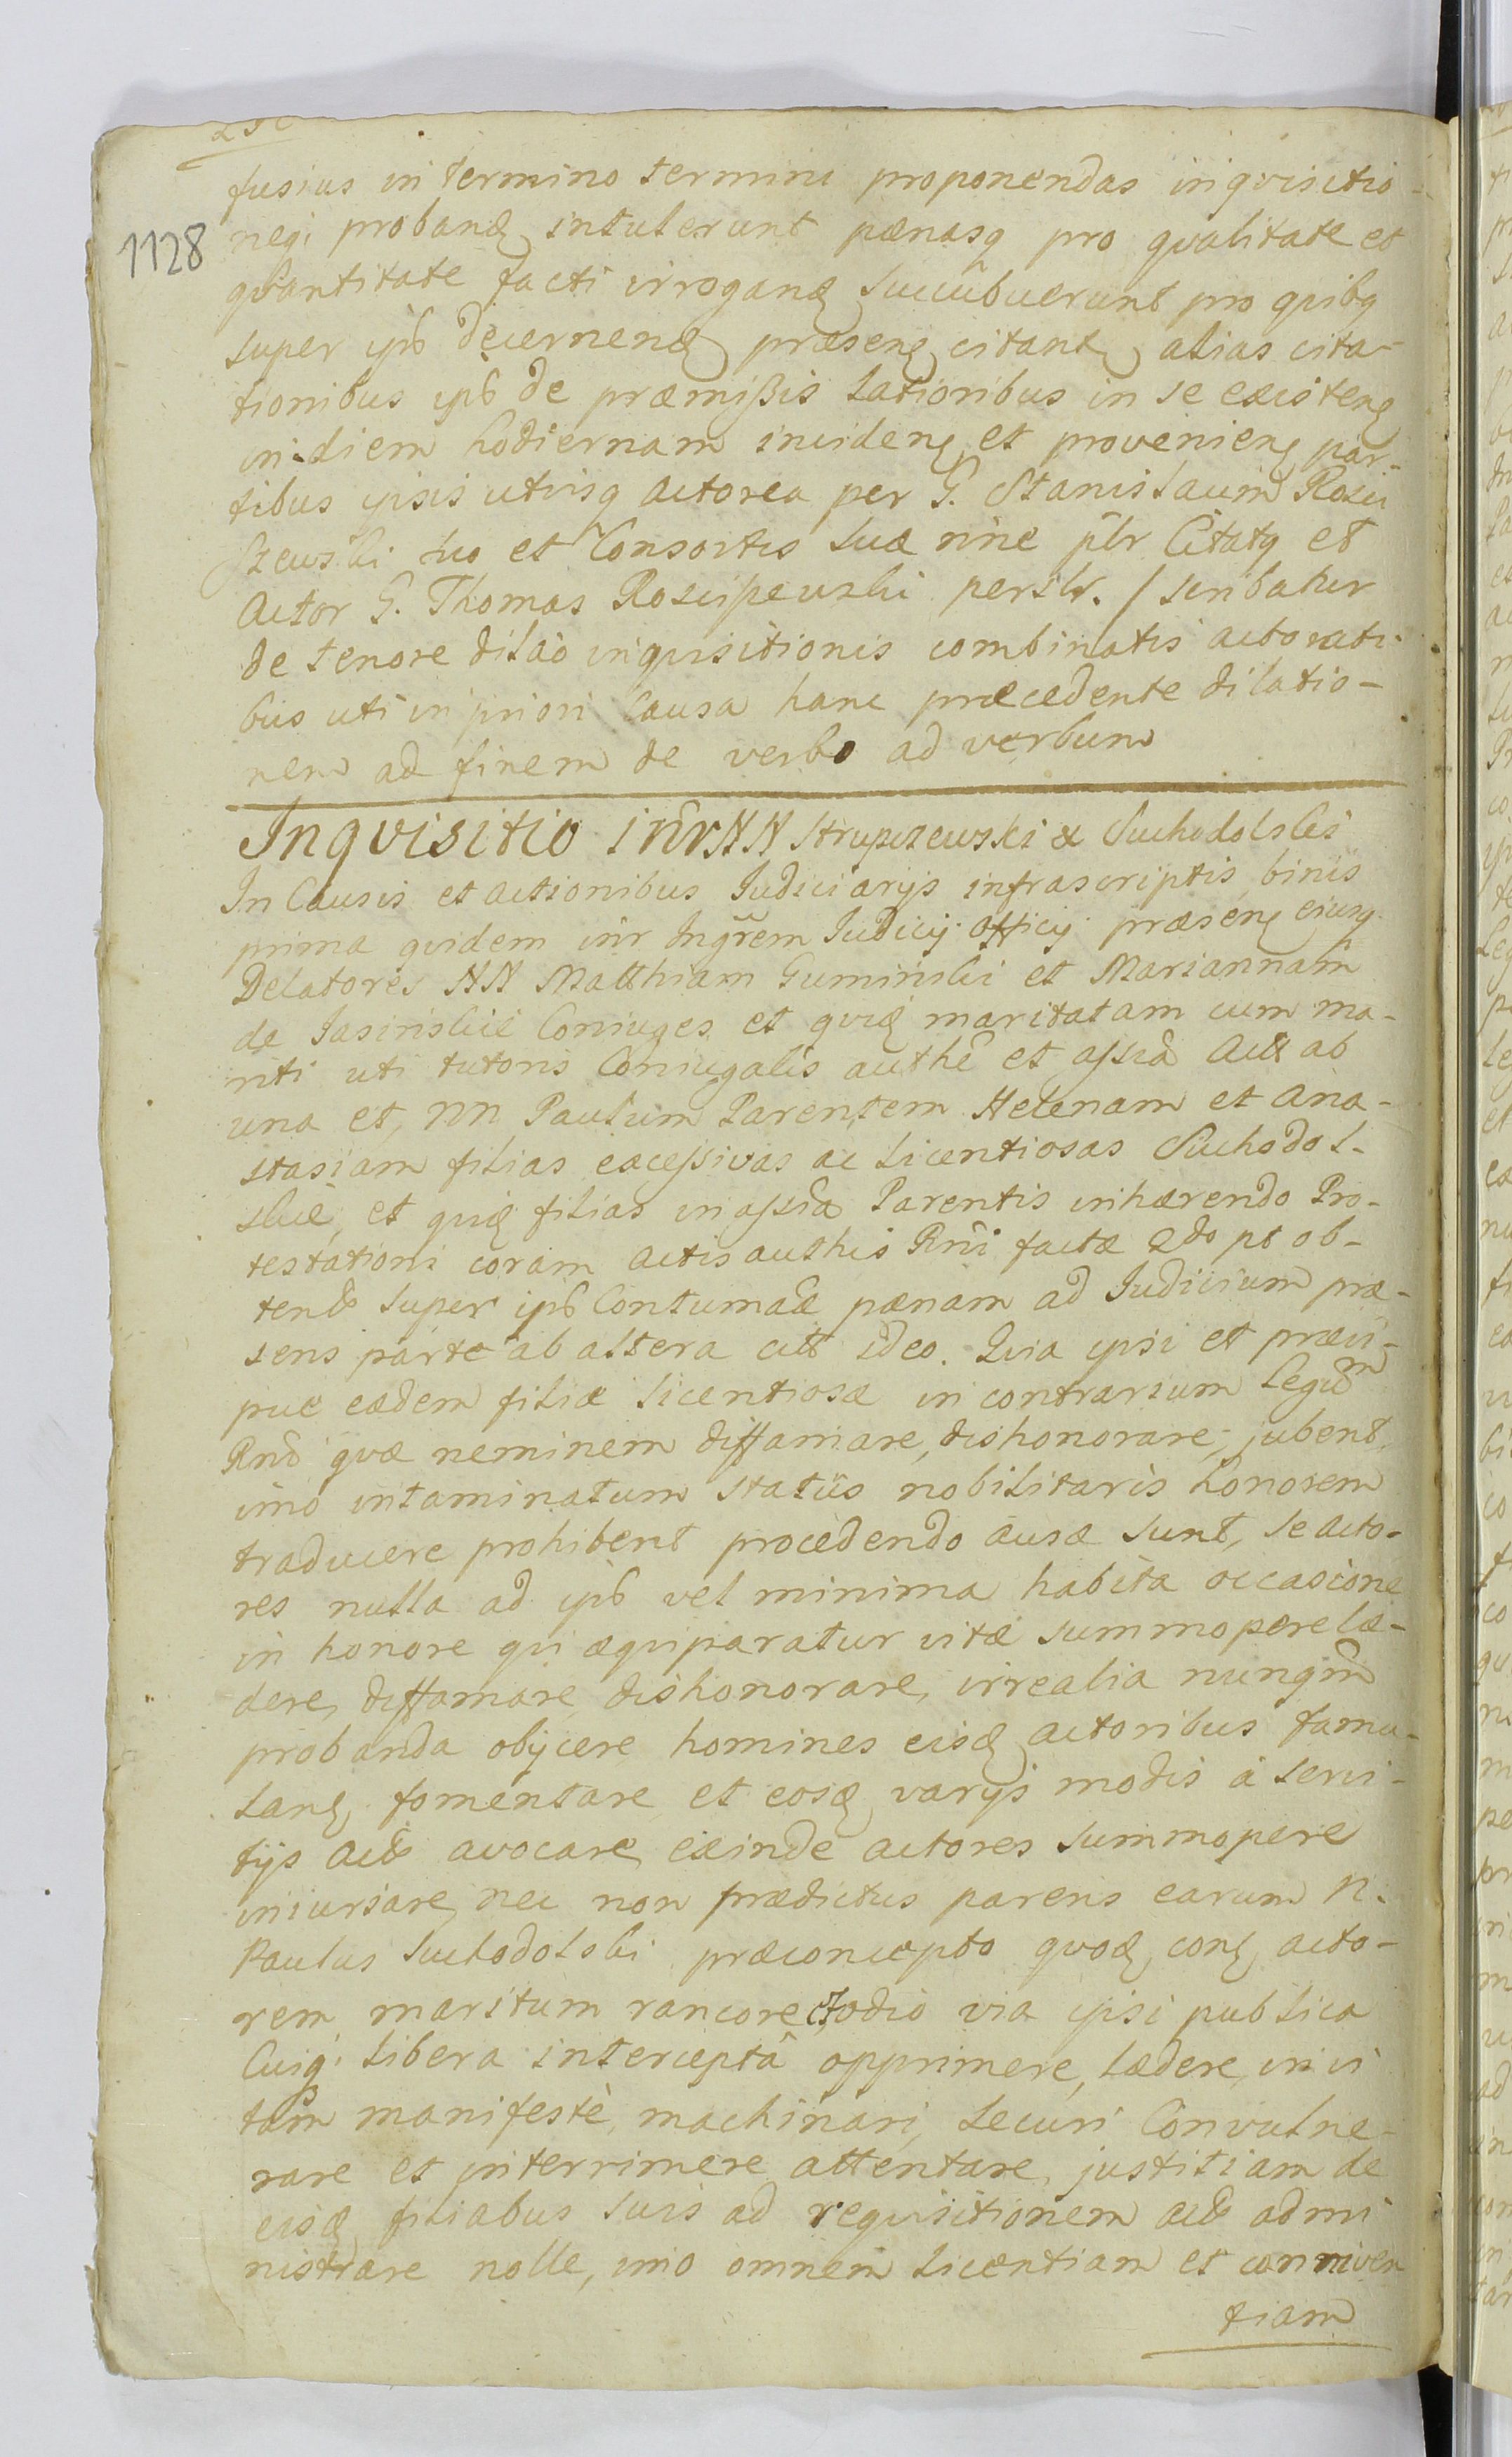 1128
fusius in termino termini proponendas inqvisitio-
neq; proband intulerunt pænasq pro qvalitate et
qvantitate facti irrogand succubuerunt pro qvibq
super ipś decernend præsenť citant alias cita-
tionibus ipś de præmißis lationibus in se existenť
in diem hodiernam incidenť et provenienť par-
tibus ipsis utrisq actorea per G. Stanislaum Rosci
szewski suo et Consortis suæ nine plr Citatq et
Actor G. Thomas Roscißewski persłr. / scribatur
de tenore dilão inqvisitionis combinatis actorati-
bus uti in priori Causa hanc præcedente dilatio-
nem ad finem de verbo ad verbum
Inqvisitio inr NN Strupczewski & Suchodolski
In Causis et actionibus Judiciarijs infrascriptis binis
prima qvidem inr Ingrem Judicij officij præsenť eiusq
Delatores NN Matthiam Guminski et Mariannam
de Jasinskie Coniuges et qvid maritatam cum ma-
riti uti tutoris Coniugalis authê et assiã Act ab
una et, NN Paulum Parentem Helenam et Ana-
stasiam filias excessivas ac licentiosas Suchodol-
skie, et qvid filias in assiã Parentis inhærendo Pro-
testationi coram actis authis Rñi factæ 2do pt ob-
tend super ipś Contumaciæ pænam ad Judicium præ-
sens parte ab altera citt ideo. Qvia ipsi et præci-
pue eædem filiæ licentiosæ in contrarium Legum
Rnd qvæ neminem diffamare, dishonorare, jubent,
imo intaminatum statûs nobilitaris honorem
traducere prohibent procedendo ausæ sunt, se acto-
res nulla ad ipś vel minima habita occasione
in honore qui æqviparatur vitæ summopere læ-
dere, diffamare dishonorare, irrealia nunqm
probanda obijcere homines eisd actoribus famu-
lanť fomentare et eosd varijs modis à servi-
tijs actt avocare, exinde actores summopere
iniuriare, nec non prædictus parens earum N.
Paulus Suchodolski præconcepto qvod conť acto-
rem maritum rancore et odio via ipsi publica
Cuiq; libera interceptâ opprimere, lædere, in vi
tam manifestè, machinari, securi Convulne-
rare et interrimere attentare, justitiam de
eisd filiabus suis ad reqvisitionem actt admi
nistrare nolle, imo omnem licentiam et conniven
tiam